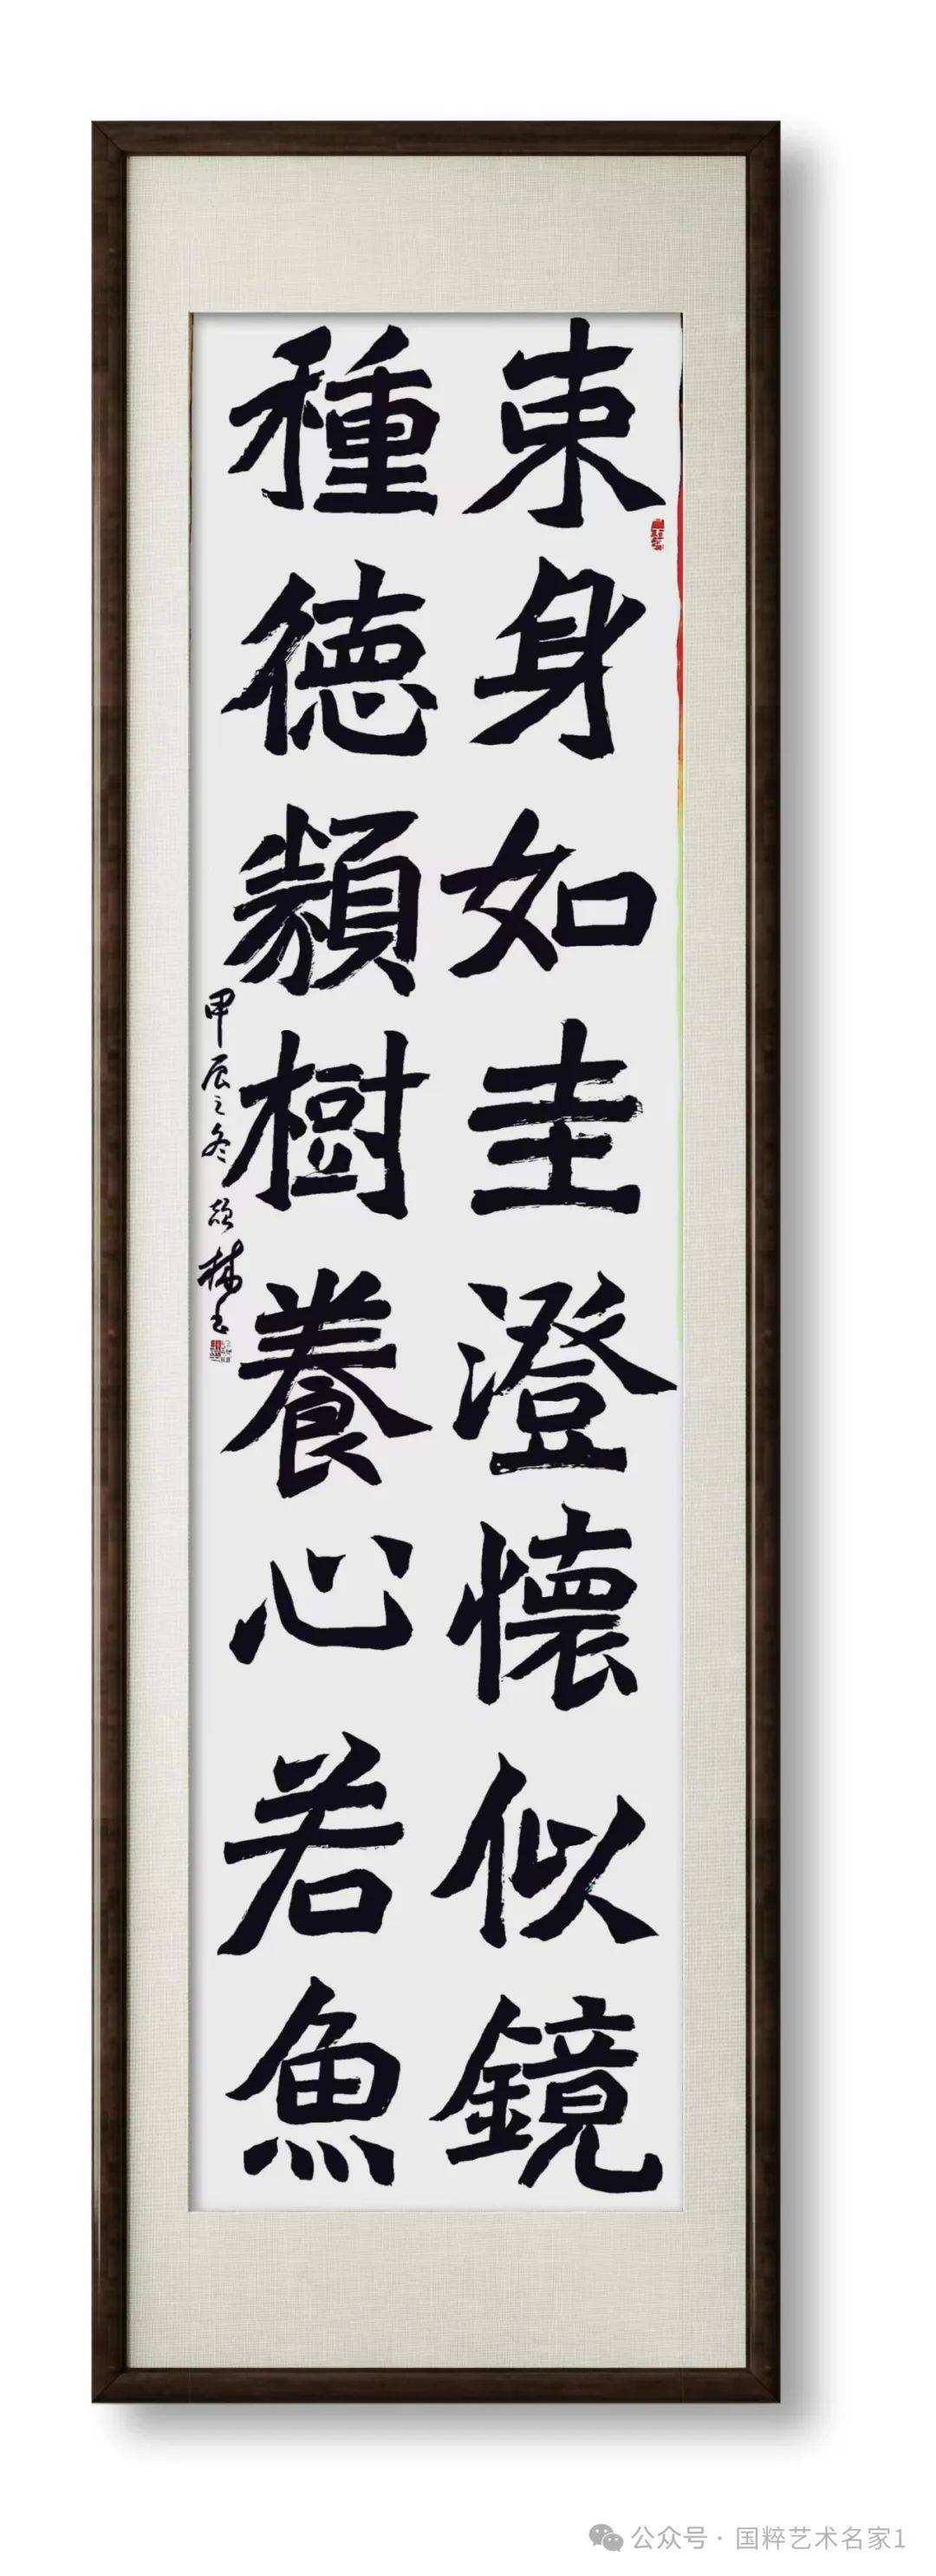 束身如圭澄懷似鏡
種德類樹養心若魚
甲辰之冬
林書
公众号 · 国粹艺术名家1